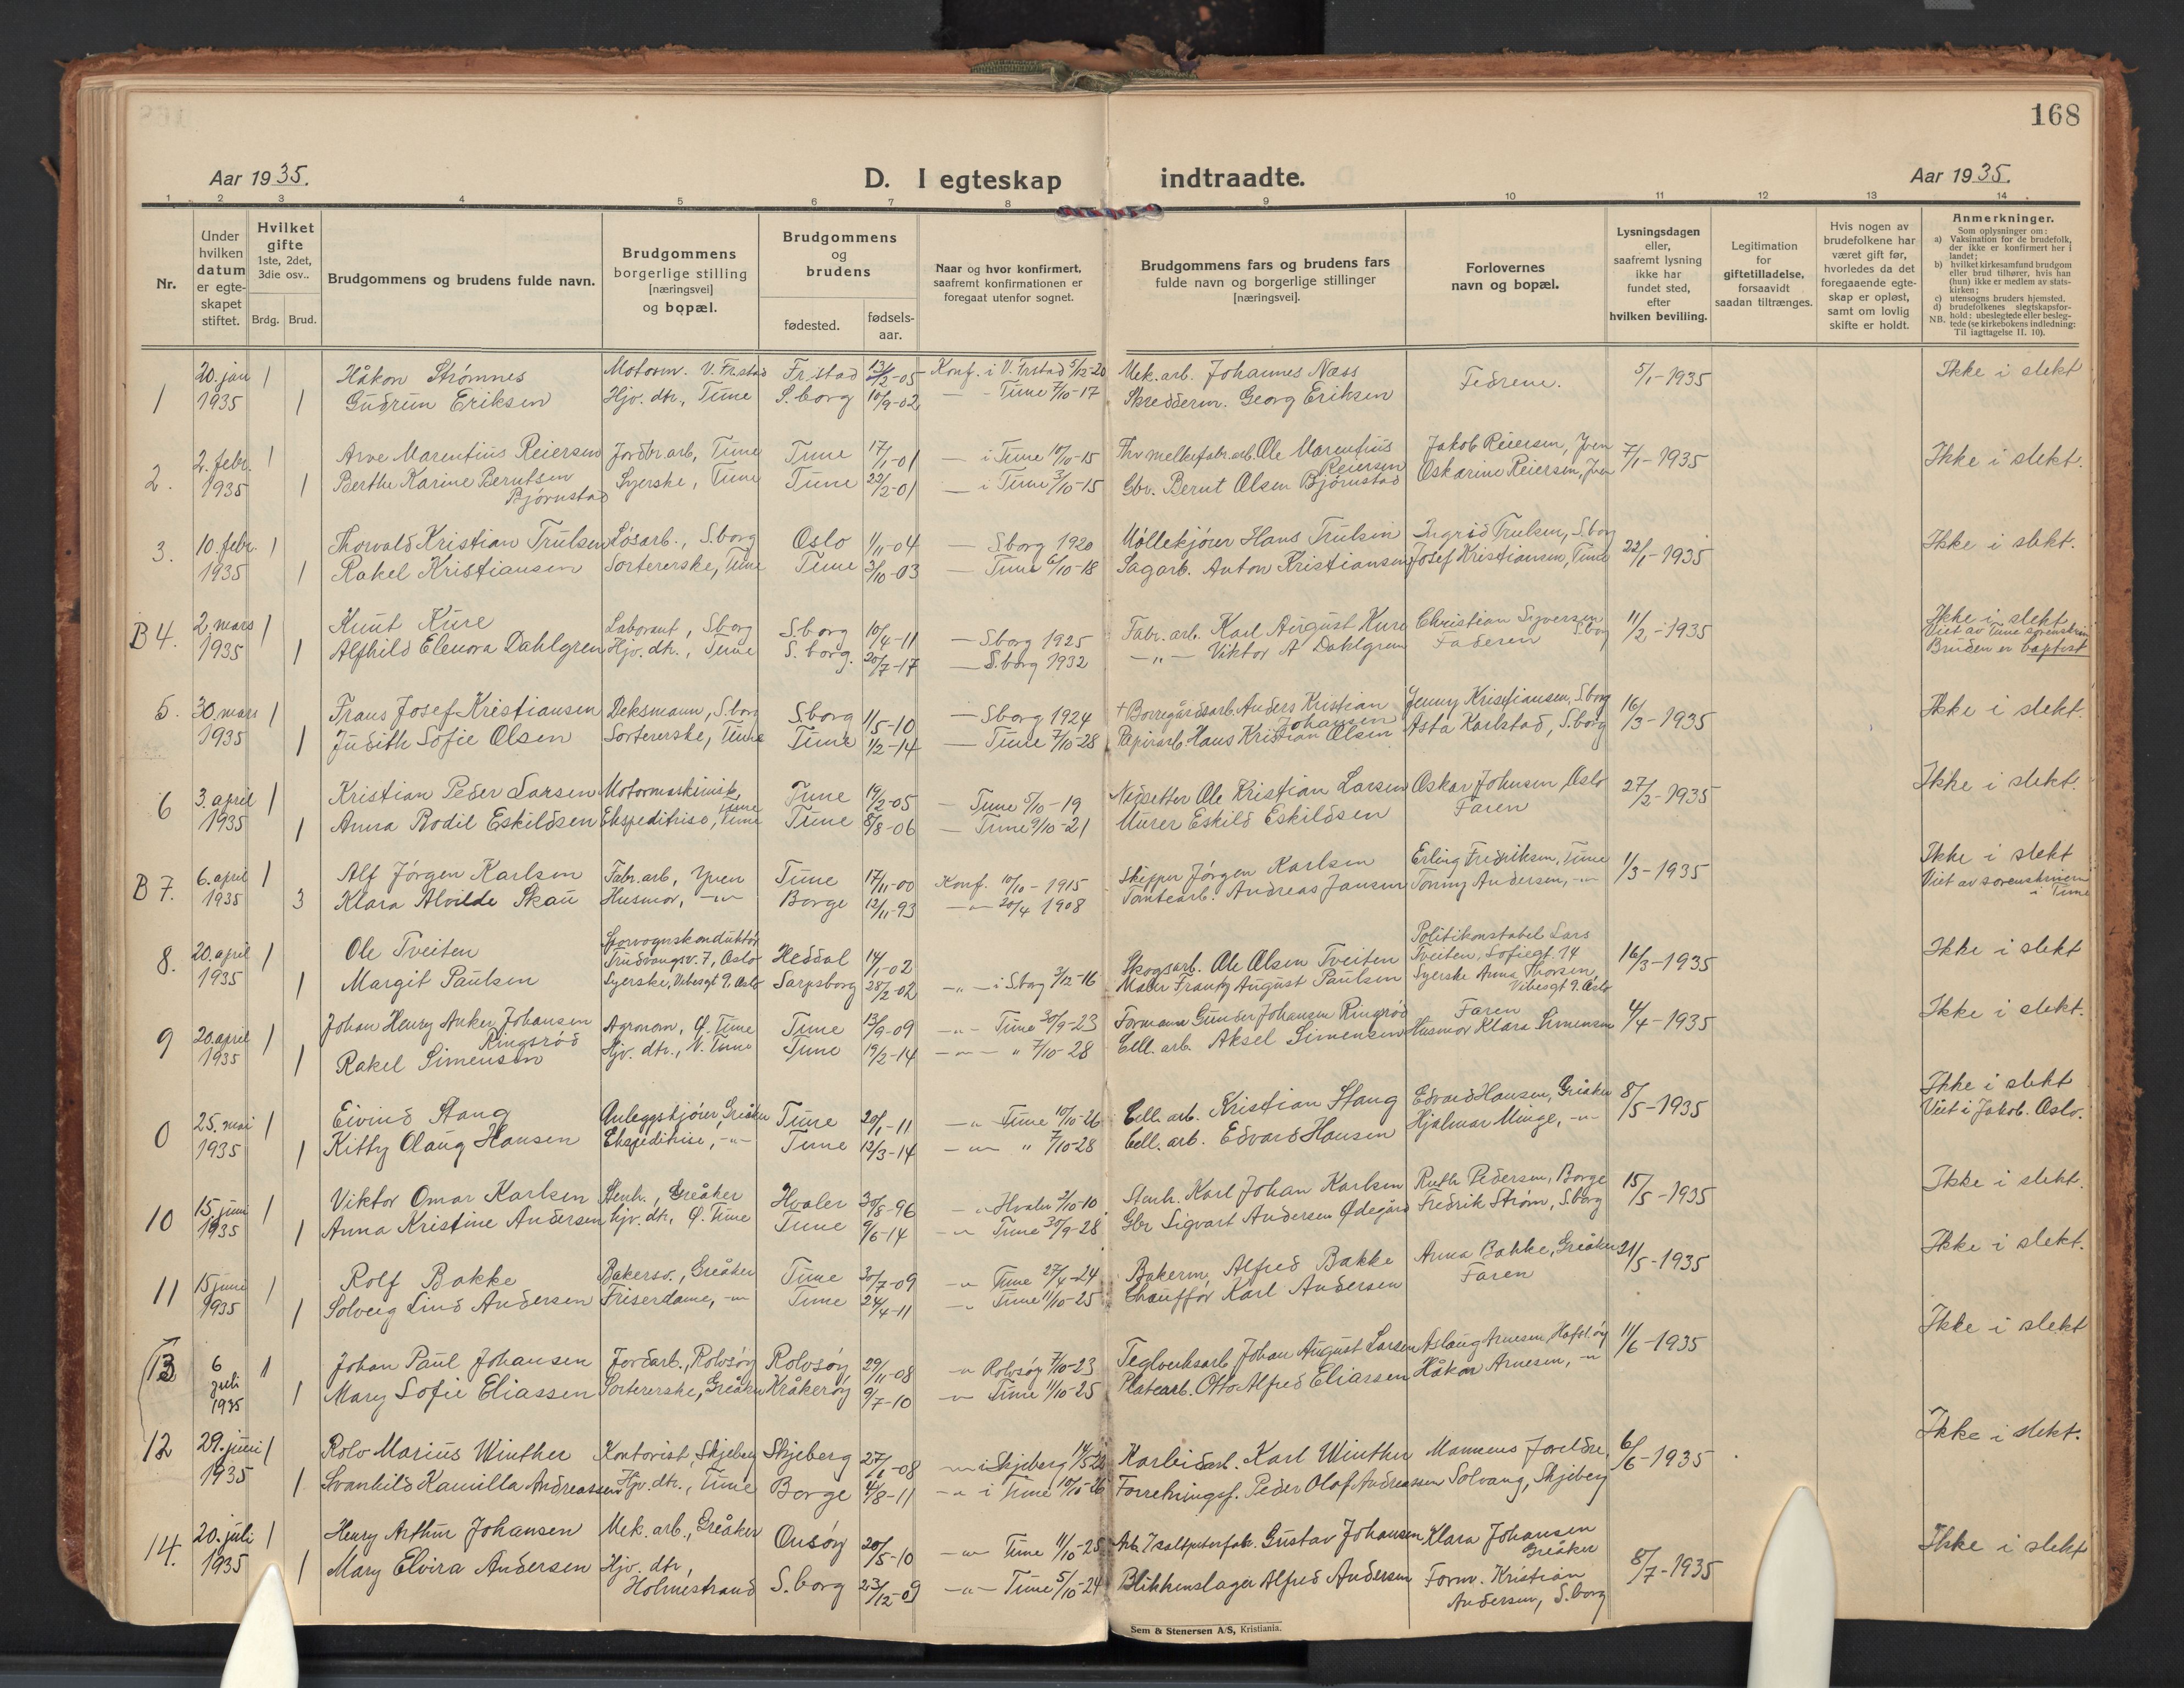 168
Aar 1935.
D. I egteskap indtraadte.
Aar 1935.
1 2 3 4 5 6 7 8 9 10 11 12 13 14
Nr.
Under hvilken datum er egteskapet stiftet.
Hvilket gifte 1ste, 2det, 3die osv..
Brdg. Brud.
Brudgommens og brudens fulde navn.
Brudgommens borgerlige stilling [næringsvei] og bopæl.
Brudgommens og brudens
fødested.
fødsels-aar.
Naar og hvor konfirmert, saafremt konfirmationen er foregaat utenfor sognet.
Brudgommens fars og brudens fars fulde navn og borgerlige stillinger [næringsvei].
Forlovernes navn og bopæl.
Lysningsdagen eller, saafremt lysning ikke har fundet sted, efter hvilken bevilling.
Legitimation for giftetilladelse, forsaavidt saadan tiltrænges.
Hvis nogen av brudefolkene har været gift før, hvorledes da det foregaaende egteskap er opløst, samt om lovlig skifte er holdt.
Anmerkninger.
Som oplysninger om:
a) Vaksination for de brudefolk, der ikke er konfirmert her i landet;
b) hvilket kirkesamfund brudgom eller brud tilhører, hvis han (hun) ikke er medlem av statskirken;
c) utensogns bruders hjemsted.
d) brudefolkenes slegtskapsforhold: ubeslegtede eller beslegtede (se kirkebokens indledning: Til iagttagelse II. 10).
NB.
1 20. jan 1935 1 Håkon Strømnes Motorm. V. Fr.stad Fr.stad 13/2-05 Konf. i V. Frstad 5/12-20 Mek. arb. Johannes Næss Fedrene. 5/1-1935 Ikke i slekt
1 Gudrun Eriksen Hjv. dtr., Tune S.borg 10/9-02 — - Tune 7/10-17 Skredderm. Georg Eriksen
2. 2. febr. 1935 1 Arve Marentius Reiersen Jordbr. arb, Tune Tune 17/1-01 — i Tune 10/10-15 Ole Marentius Reiersen Jakob Reiersen, Yven 7/1-1935 Ikke i slekt.
1 Berthe Karine Berntsen Bjørnstad Syerske, Tune Tune 22/2-01 — i Tune 3/10-15 Gbr. Bernt Olsen Bjørnstad Oskarine Reiersen, Yven
3. 10. febr. 1935 1 Thorvald Kristian Trulsen Løsarb., S.borg Oslo 1/11-04 — S.borg 1920 Møllekjører Hans Trulsen Ingrid Trulsen, S.borg 22/1-1935 Ikke i slekt.
1 Rakel Kristiansen Sortererske, Tune Tune 3/10-03 — Tune 6/10-18 Sagarb. Anton Kristiansen Josef Kristiansen, Tune
B 4. 2. mars 1935 1 Knut Kure Laborant, Sborg S.borg 10/4-11 — Sborg 1925 Fabr. arb. Karl August Kure Christian Syversen Sborg 11/2-1935 Ikke i slekt
Viet av Tune sorenskriv.
1 Alfhild Elenora Dahlgren Hjv. dtr., Tune S.borg. 20/7-17 — S.borg 1932 —„— Viktor A Dahlgren Faderen Bruden er baptist
5. 30. mars 1935 1 Frans Josef Kristiansen Deksmann, S.borg S.borg 11/5-10 — Sborg 1924 + Borregårdsarb. Anders Kristian Johansen Jenny Kristiansen, S.borg 16/3-1935 Ikke i slekt.
1 Judith Sofie Olsen Sortererske, Tune Tune 1/2-14 — Tune 7/10-28 Papirarb. Hans Kristian Olsen Asta Karlstad, S.borg
6 3. april 1935 1 Kristian Peder Larsen Motormaskinist, Tune Tune 19/2-05 — Tune 5/10-19 Ole Kristian Larsen Oskar Johnsen, Oslo 27/2-1935 Ikke i slekt.
1 Anna Bodil Eskildsen Ekspeditrise, Tune Tune 8/8-06 — Tune 9/10-21 Murer Eskild Eskildsen Faren
B 7. 6. april 1935 1 Alf Jørgen Karlsen Fabr. arb, Yven Tune 17/11-00 Konf. 10/10-1915 Skipper Jørgen Karlsen Erling Fredriksen, Tune 1/3-1935 Ikke i slekt
3 Klara Alvilde Skau Husmor, -„- Borge 12/11-93 -„- 20/4 1908 Tomtearb. Andreas Jansen Tommy Andersen, -„- Viet av sorenskriveren i Tune
8. 20. april 1935 1 Ole Tveiten Sporvognskonduktør Trudvangsv. 7, Oslo Heddal 14/1-02 Skogsarb. Ole Olsen Tveiten Politikonstabel Lars Tveiten, Sofiegt. 14 16/3-1935 Ikke i slekt
1 Margit Paulsen Syerske, Vibesgt 9, Oslo Sarpsborg 28/2-02 -„- i S.borg 3/12-16 Maler Frantz August Paulsen Syerske Anna Thorsen, Vibesgt 9. Oslo
9 20. april 1935 1 Johan Henry Anker Johansen Ringsrød Agronom, Ø. Tune Tune 13/9-09 -„- Tune 30/9-23 Formann Gunder Johansen Ringsrød Faren 4/4-1935 Ikke i slekt.
1 Rakel Simensen Hjv. dtr., V. Tune Tune 19/2-14 -„- „ 7/10-28 Cell. arb. Aksel Simensen Husmor Klara Simensen
0 25. mai 1935 1 Eivind Stang Anleggskjører, Greåker Tune 20/1-11 -„- Tune 10/10-26 Cell. arb. Kristian Stang Edvard Hansen, Greåker 8/5-1935 Ikke i slekt
1 Kitty Olaug Hansen Ekspeditrise, -„- Tune 12/3-14 -„- „ 7/10-28 Cell. arb. Edvard Hansen Hjalmar Minge, -„- Viet i Jakob. Oslo.
10 15. juni 1935 1 Viktor Omar Karlsen Stenh., Greåker Hvaler 30/8-96 -„- Hvaler 2/10-10 Stenh. Karl Johan Karlsen Ruth Pedersen, Borge 15/5-1935 Ikke i slekt.
1 Anna Kristine Andersen Hjv. dtr, Ø. Tune Tune 9/6-14 -„- Tune 30/9-28 Gbr Sigvart Andersen Ødegård Fredrik Strøm, S.borg
11 15 june 1935 1 Rolf Bakke Bakersv., Greåker Tune 30/7-09 -„- Tune 27/4-24 Bakerm, Alfred Bakke Anna Bakke, Greåker 21/5-1935 Ikke i slekt.
1 Solveig Lind Andersen Friserdame, -„- Tune 24/4-11 -„- Tune 11/10-25 Chauffør Karl Andersen Faren
13 6 juli 1935 1 Johan Paul Johansen Jordarb., Rolvsøy Rolvsøy 29/11-08 -„- Rolvsøy 7/10-23 Teglverksarb. Johan August Larsen Aslaug Arnesen, Hafsl.øy 11/6-1935 Ikke i slekt
1 Mary Sofie Eliassen Sortererske, Greåker Kråkerøy 9/7-10 -„- Tune 11/10-25 Platearb. Otto Alfred Eliassen Håkon Arnesen, -„-
12 29. juni 1935 1 Rolv Marius Winther Kontorist, Skjeberg Skjeberg 27/6-08 -„- i Skjeberg Karbidarb. Karl Winther Mannens foreldre, 6/6-1935 Ikke i slekt.
1 Svanhild Kamilla Andreassen Hjv. dtr., Tune Borge 4/8-11 -„- i Tune 10/10-26 Forretningsf. Peder Olaf Andreassen Solvang, Skjeberg
14. 20. juli 1935 1 Henry Arthur Johansen Mek. arb., Greåker Onsøy 20/5-10 -„- Tune 11/10-25 Gustav Johansen Klara Johansen Greåker 8/7-1935 Ikke i slekt
1 Mary Elvira Andersen Hjv. dtr, Holmestrand S.borg 23/12-09 -„- Tune 5/10-24 Blikkenslager Alfred Andersen Form. Kristian Andersen, S.borg
Sem & Stenersen A/S, Kristiania.